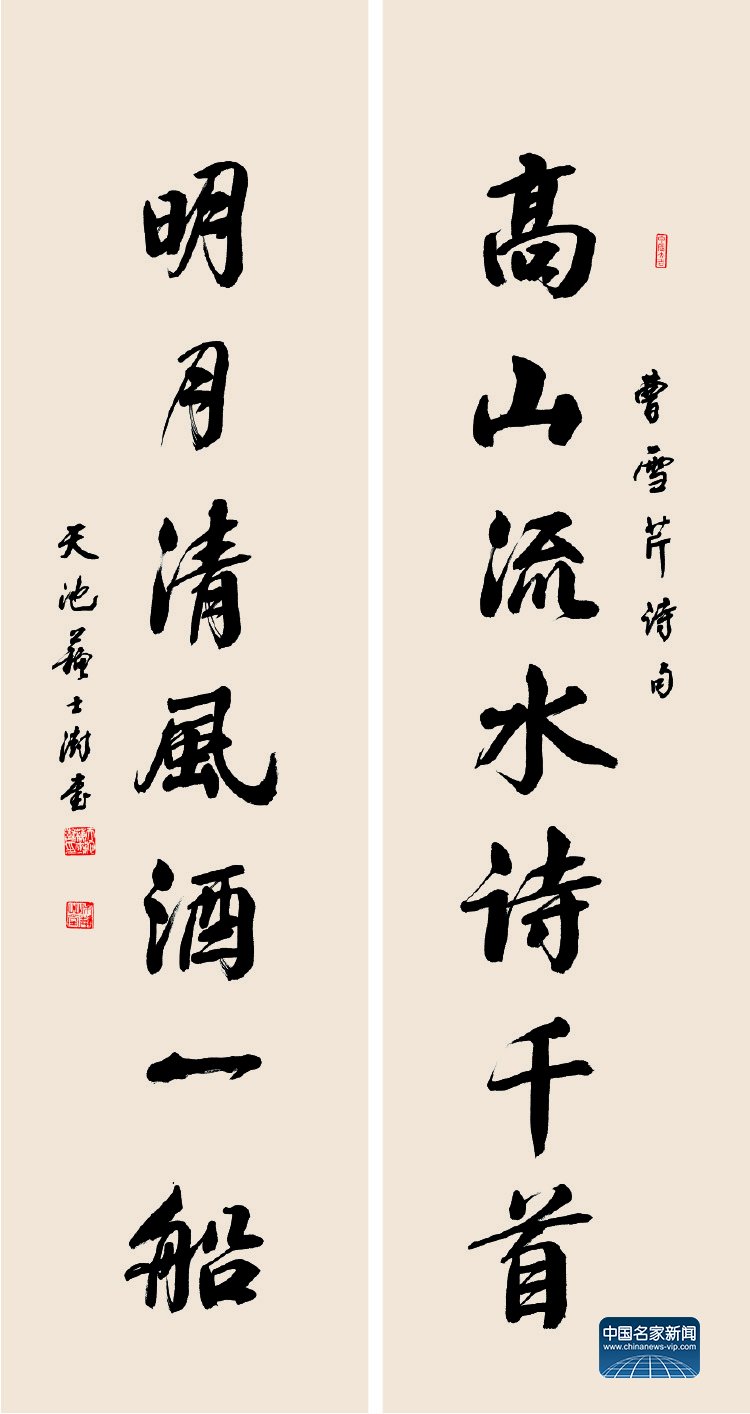 曹雪芹诗句
高山流水诗千首
明月清风酒一船
天池苏士澍书
中国名家新闻
www.chinanews-vip.com